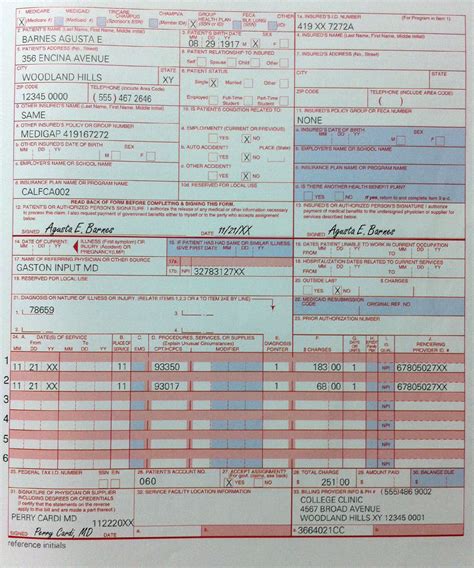 1. MEDICARE MEDICAID TRICARE CHAMPUS CHAMPVA GROUP HEALTH PLAN FECA BLK LUNG OTHER 1a. INSURED'S I.D. NUMBER (For Program in Item 1)
X (Medicare #) (Medicaid #) (Sponsor's SSN) (Member ID#) 419 XX 7272A
2. PATIENT'S NAME (Last Name, First Name, Middle Initial) 3. PATIENT'S BIRTH DATE SEX 4. INSURED'S NAME (Last Name, First Name, Middle Initial)
BARNES AGUSTA E 08 29 1917 M F X
5. PATIENT'S ADDRESS (No., Street) 6. PATIENT RELATIONSHIP TO INSURED 7. INSURED'S ADDRESS (No., Street)
356 ENCINA AVENUE Self Spouse Child Other
CITY STATE 8. PATIENT STATUS CITY STATE
WOODLAND HILLS XY Single X Married Other
ZIP CODE TELEPHONE (Include Area Code) ZIP CODE TELEPHONE (INCLUDE AREA CODE)
12345 0000 (555) 467 2646 Employed Full-Time Student Part-Time Student
9. OTHER INSURED'S NAME (Last Name, First Name, Middle Initial) 10. IS PATIENT'S CONDITION RELATED TO: 11. INSURED'S POLICY GROUP OR FECA NUMBER
SAME NONE
a. OTHER INSURED'S POLICY OR GROUP NUMBER a. EMPLOYMENT? (CURRENT OR PREVIOUS) a. INSURED'S DATE OF BIRTH SEX
MEDIGAP 419167272 YES X NO
b. OTHER INSURED'S DATE OF BIRTH SEX b. AUTO ACCIDENT? PLACE (State) b. EMPLOYER'S NAME OR SCHOOL NAME
YES X NO
c. EMPLOYER'S NAME OR SCHOOL NAME c. OTHER ACCIDENT? c. INSURANCE PLAN NAME OR PROGRAM NAME
YES X NO
d. INSURANCE PLAN NAME OR PROGRAM NAME 10d. RESERVED FOR LOCAL USE d. IS THERE ANOTHER HEALTH BENEFIT PLAN?
CALFCA002 YES NO
READ BACK OF FORM BEFORE COMPLETING & SIGNING THIS FORM.
12. PATIENT'S OR AUTHORIZED PERSON'S SIGNATURE 13. INSURED'S OR AUTHORIZED PERSON'S SIGNATURE
SIGNED Agusta E. Barnes DATE 11/21/XX SIGNED Agusta E. Barnes
14. DATE OF CURRENT: ILLNESS (First symptom) OR INJURY (Accident) OR PREGNANCY(LMP) 15. IF PATIENT HAS HAD SAME OR SIMILAR ILLNESS, GIVE FIRST DATE 16. DATES PATIENT UNABLE TO WORK IN CURRENT OCCUPATION
17. NAME OF REFERRING PHYSICIAN OR OTHER SOURCE 17a. 18. HOSPITALIZATION DATES RELATED TO CURRENT SERVICES
GASTON INPUT MD 17b. NPI 32783127XX
19. RESERVED FOR LOCAL USE 20. OUTSIDE LAB? $ CHARGES
YES X NO
21. DIAGNOSIS OR NATURE OF ILLNESS OR INJURY. (RELATE ITEMS 1,2,3 OR 4 TO ITEM 24E BY LINE) 22. MEDICAID RESUBMISSION CODE ORIGINAL REF. NO.
1. 78659 3.
23. PRIOR AUTHORIZATION NUMBER
2. 4.
24. A. DATE(S) OF SERVICE B. PLACE OF SERVICE C. EMG D. PROCEDURES, SERVICES, OR SUPPLIES E. DIAGNOSIS POINTER F. $ CHARGES G. H. I. J. RENDERING PROVIDER ID. #
MM DD YY MM DD YY CPT/HCPCS MODIFIER
1 11 21 XX 11 93350 1 183 00 1 NPI 67805027XX
2 11 21 XX 11 93017 1 68 00 1 NPI 67805027XX
3 NPI
4 NPI
5 NPI
6 NPI
25. FEDERAL TAX I.D. NUMBER SSN EIN 26. PATIENT'S ACCOUNT NO. 27. ACCEPT ASSIGNMENT? 28. TOTAL CHARGE 29. AMOUNT PAID 30. BALANCE DUE
060 X YES NO $ 251 00 $ $
31. SIGNATURE OF PHYSICIAN OR SUPPLIER INCLUDING DEGREES OR CREDENTIALS 32. SERVICE FACILITY LOCATION INFORMATION 33. BILLING PROVIDER INFO & PH # (555)486 9002
(I certify that the statements on the reverse apply to this bill and are made a part thereof.) COLLEGE CLINIC
4567 BROAD AVENUE
PERRY CARDI MD 112220XX WOODLAND HILLS XY 12345 0001
SIGNED Perry Cardi, MD DATE 3664021CC
reference initials